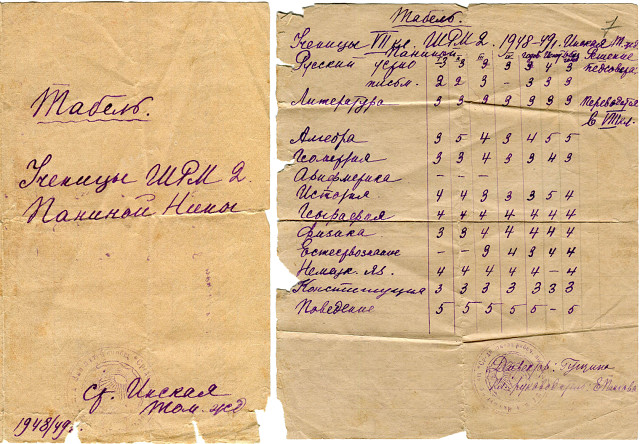 Табель.
Ученицы ШРМ 2
Паниной Нины
ст. Инская
Том. жд
1948/49г.
7
Табель.
Ученицы VII кл. ШРМ 2. 1948-49г. Инская Т. жд
Паниной
Решение
Русский устно 3 3 3 4 3 педсовета:
письм. 2 2 3 - 3 3 3
Литература 3 3 3 3 3 3 3 Переводится
в VIII кл.
Алгебра 3 5 4 3 4 5 5
Геометрия 3 3 4 3 3 4 3
Арифметика - - -
История 4 4 3 3 3 5 4
География 4 4 4 4 4 4 4
Физика 3 3 4 4 4 4 4
Естествознание - - 3 4 3 4 4
Немецк. яз. 4 4 4 4 4 - 4
Конституция 3 3 3 3 3 3 3
Поведение 5 5 5 5 5 - 5
Директор:
Кл. руководитель: